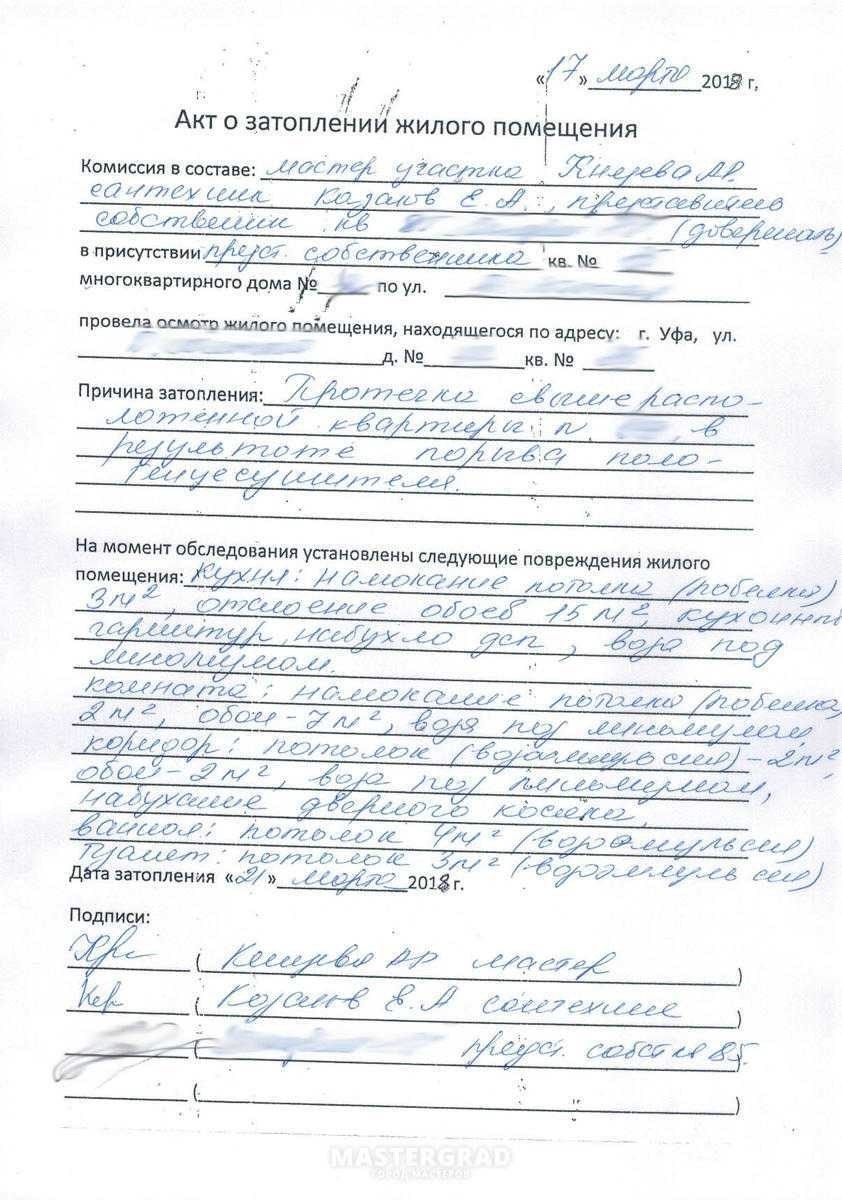 «17» марта 2018 г,
Акт о затоплении жилого помещения
Комиссия в составе: мастер участка Князева А.Р.
сантехник Казаков Е.А., представитель
собственник кв (доверенность)
в присутствии предст. собственника кв. №
многоквартирного дома № по ул.
провела осмотр жилого помещения, находящегося по адресу: г. Уфа, ул.
д. № кв. №
Причина затопления: Протечка свыше распо-
ложенной квартиры п. в
результате порыва поло-
тенцесушителя.
На момент обследования установлены следующие повреждения жилого
помещения: кухня: намокание потолка (побелка)
3 м², отслоение обоев 15 м², кухонный
гарнитур, набухло дсп, вода под
линолиумом.
комната: намокание потолка (побелка)
2 м², обои - 7 м², вода под линолиумом,
коридор: потолок (водоэмульсия) - 2 м²,
обои - 2 м², вода под линолиумом,
набухание дверного косяка,
ванная: потолок 4 м² (водоэмульсия)
туалет: потолок 3 м² (водоэмульсия)
Дата затопления «21» марта 2018 г.
Подписи:
( Князева АР мастер )
( Казаков Е.А сантехник )
( предст. собств кв 85. )
( )
MASTERGRAD
ГОРОД МАСТЕРОВ